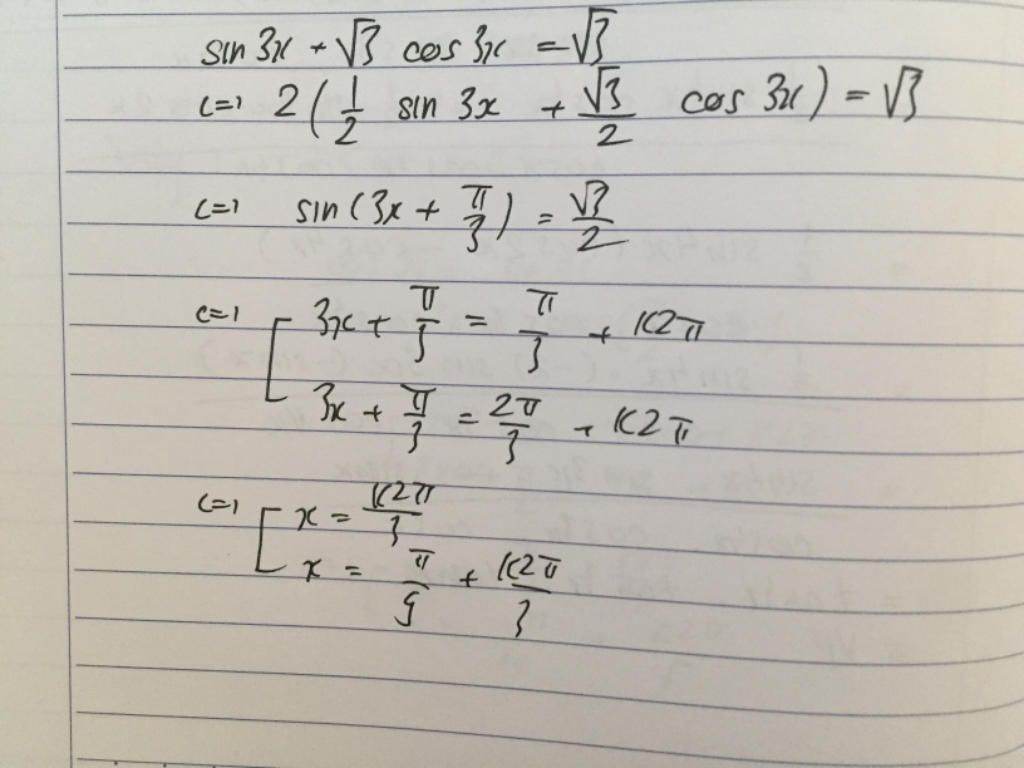 sin 3x + √3 cos 3x = √3
<=> 2(1/2 sin 3x + √3/2 cos 3x) = √3
<=> sin(3x + π/3) = √3/2
<=> [ 3x + π/3 = π/3 + k2π
3x + π/3 = 2π/3 + k2π
<=> [ x = k2π/3
x = π/9 + k2π/3